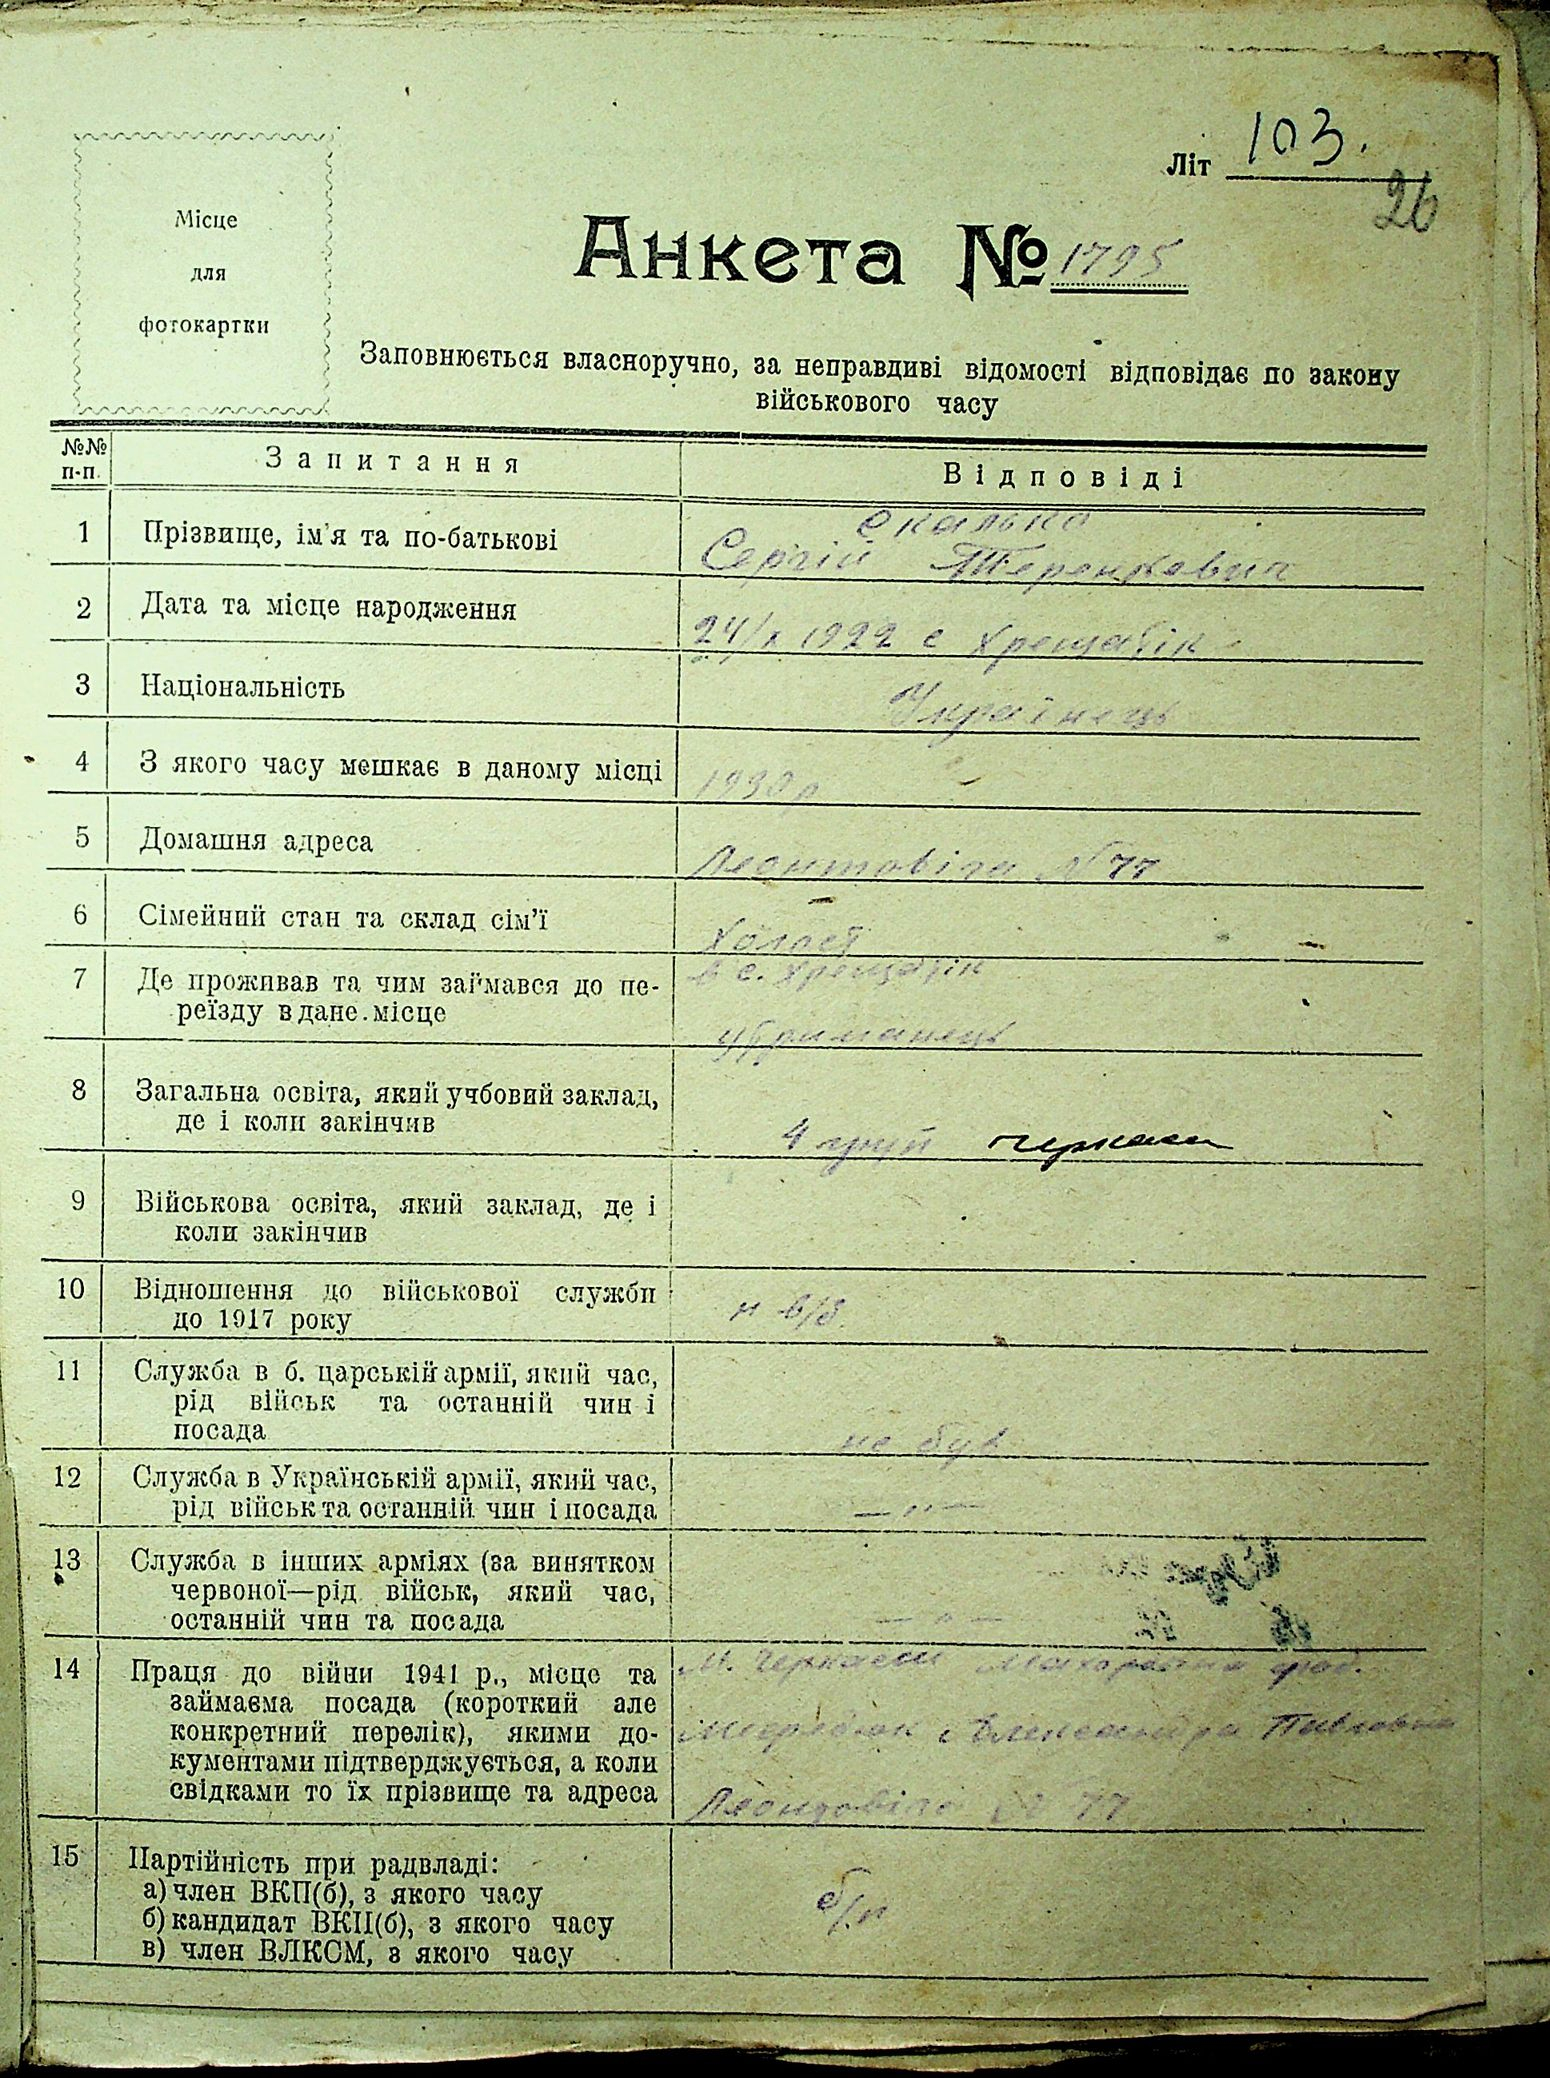 Місце
для
фотокартки
Літ 103.
26
Анкета № 1795
Заповнюється власноручно, за неправдиві відомості відповідає по закону
військового часу
№№
п-п.
Запитання
Відповіді
1 Прізвище, ім'я та по-батькові
Скалько
Сергій
2 Дата та місце народження
24/X 1922 с Хрещатік
3 Національність
Українець
4 З якого часу мешкає в даному місці
1930 р
5 Домашня адреса
Леонтовіча № 77
6 Сімейний стан та склад сім'ї
Холост
7 Де проживав та чим займався до пе-
реїзду в дане місце
в с. Хрещатік
утриманець
8 Загальна освіта, який учбовий заклад,
де і коли закінчив
4 груп Черкаси
9 Військова освіта, який заклад, де і
коли закінчив
10 Відношення до військової служби
до 1917 року
н в/б
11 Служба в б. царській армії, який час,
рід військ та останній чин і
посада
не був
12 Служба в Українській армії, який час,
рід військ та останній чин і посада
— " —
13 Служба в інших арміях (за винятком
червоної—рід військ, який час,
останній чин та посада
— " —
14 Праця до війни 1941 р., місце та
займаєма посада (короткий але
конкретний перелік), якими до-
кументами підтверджується, а коли
свідками то їх прізвище та адреса
М. Черкаси Махорочна фаб.
Александра Павловна
Леонтовіча № 77
15 Партійність при радвладі:
а) член ВКП(б), з якого часу
б) кандидат ВКП(б), з якого часу
в) член ВЛКСМ, з якого часу
б/п